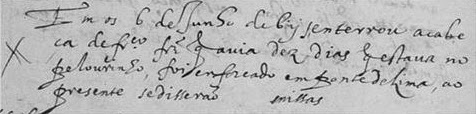 Em os 6 de Junho de 615 enterrou a cabe
ça de frco frz q avia dez dias q estava no
pelourinho, foi enforcado em ponte de lima, ao
presente se disserão missas